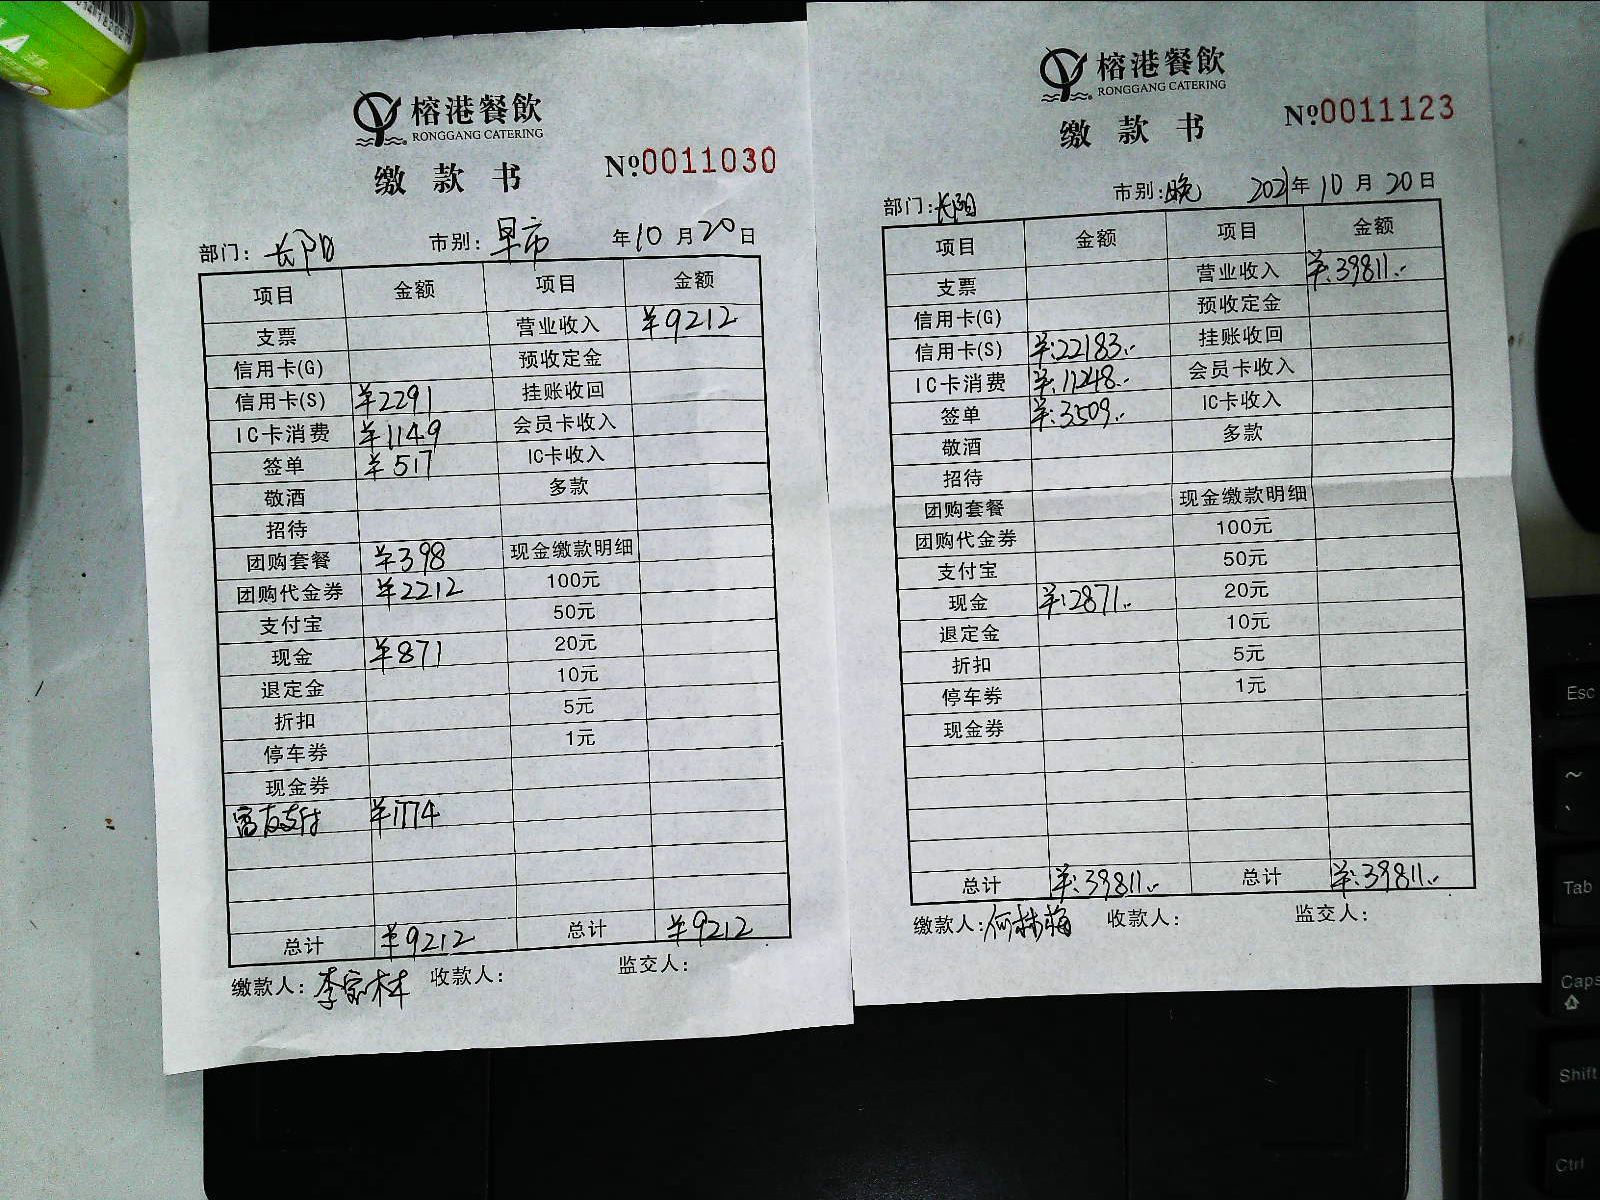 榕港餐飲
RONGGANG CATERING
缴款书
№0011030
部门：长阳 市别：早市 年10月20日
项目 金额 项目 金额
支票 营业收入 ¥9212
信用卡(G) 预收定金
信用卡(S) ¥2291 挂账收回
IC卡消费 ¥1149 会员卡收入
签单 ¥517 IC卡收入
敬酒 多款
招待
团购套餐 ¥398 现金缴款明细
团购代金券 ¥2212 100元
支付宝 50元
现金 ¥871 20元
退定金 10元
折扣 5元
停车券 1元
现金券
富友支付 ¥1774
总计 ¥9212 总计 ¥9212
缴款人：李宝林 收款人： 监交人：
榕港餐飲
RONGGANG CATERING
缴款书
№0011123
部门：长阳 市别：晚 2021年10月20日
项目 金额 项目 金额
支票 营业收入 ¥:39811.-
信用卡(G) 预收定金
信用卡(S) ¥:22183.- 挂账收回
IC卡消费 ¥:11248.- 会员卡收入
签单 ¥:3509.- IC卡收入
敬酒 多款
招待
团购套餐 现金缴款明细
团购代金券 100元
支付宝 50元
现金 ¥:2871.- 20元
退定金 10元
折扣 5元
停车券 1元
现金券
总计 ¥:39811.- 总计 ¥:39811.-
缴款人：何林梅 收款人： 监交人：
Esc
~
Tab
Caps
Shift
Ctrl